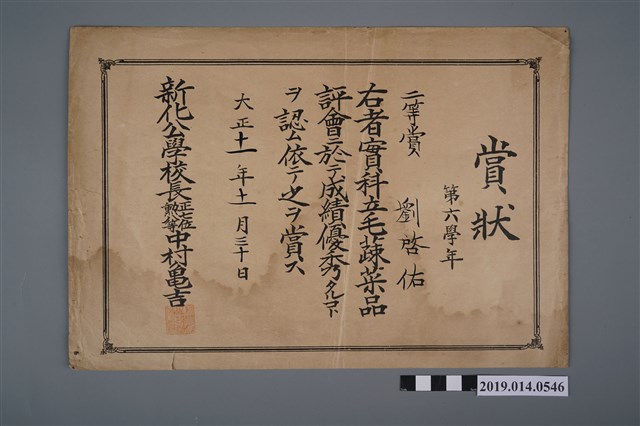 賞狀
第六學年
二等賞 劉啓佑
右者實科立毛蔬菜品
評會ニ於テ成績優秀タルコト
ヲ認ム依テ之ヲ賞ス
大正十一年十一月三十日
新化公學校長正七位勲八等中村亀吉
2019.014.0546